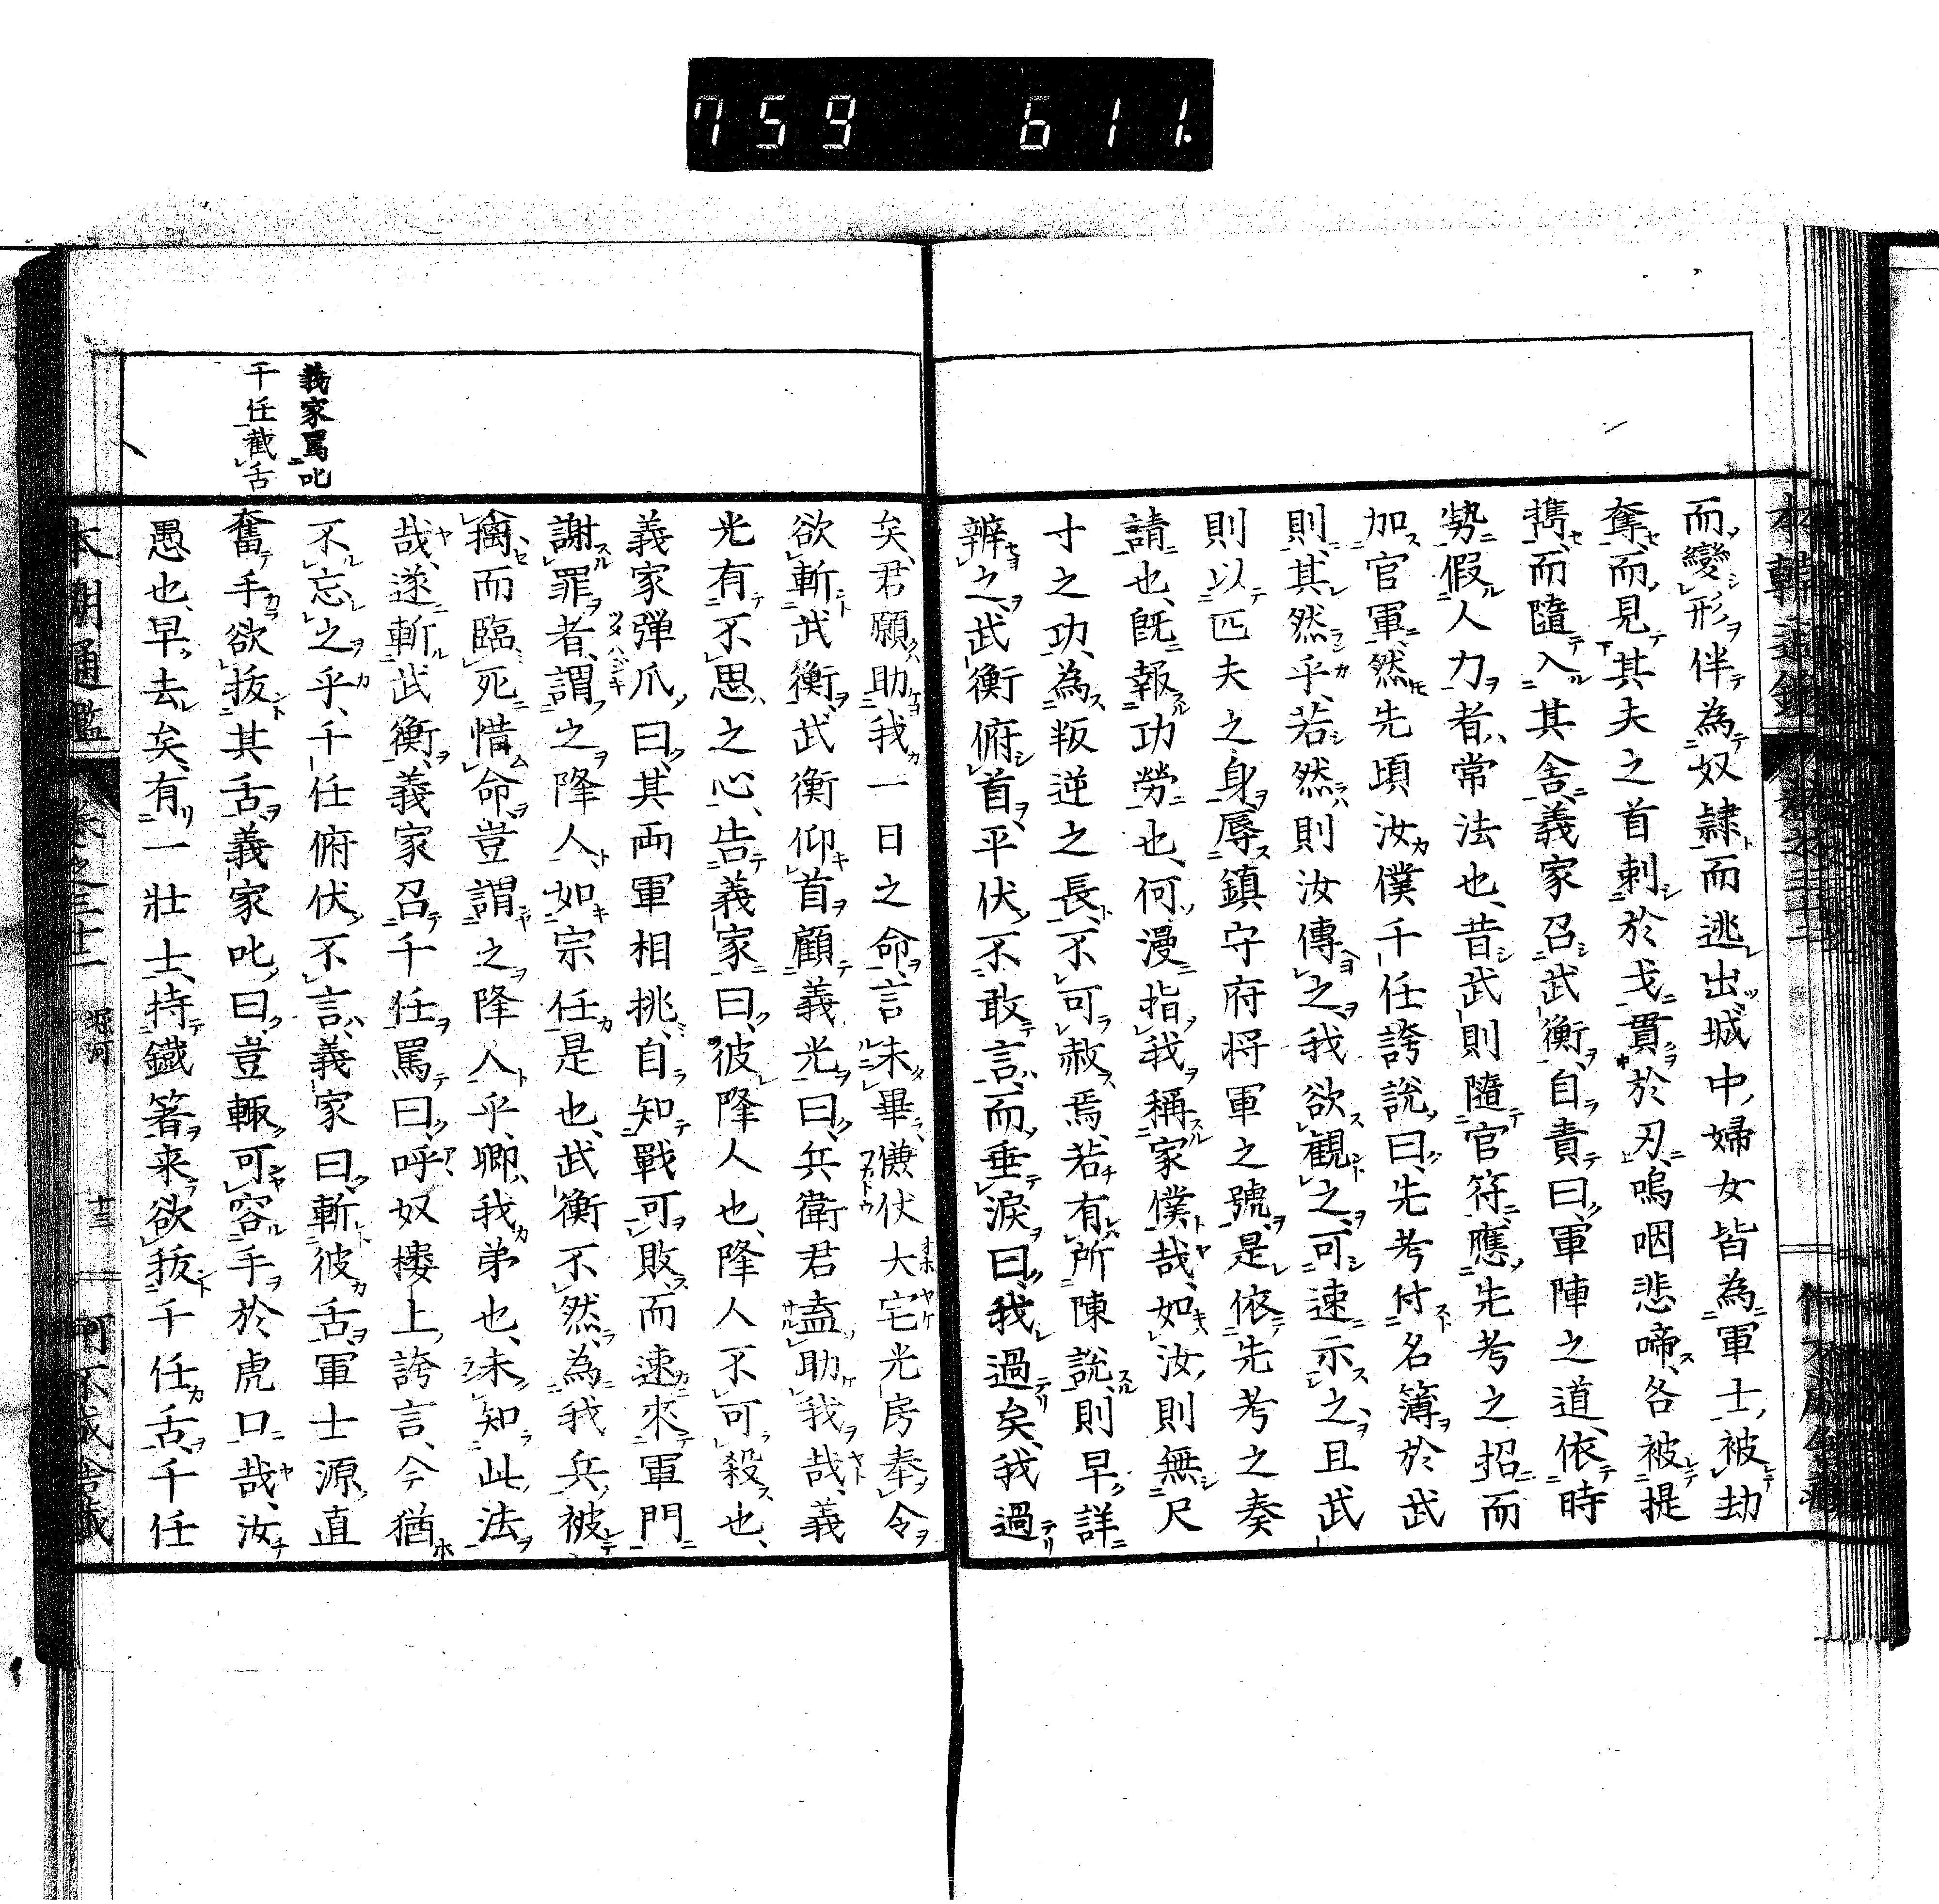 759 611.
而變形伴為奴隷而逃出、城中婦女皆為軍士被劫
奪、而見其夫之首刺於戈貫於刃、嗚咽悲啼、各被提
携、而隨入其舍、義家召武衡、自責曰、軍陣之道、依時
勢假人力者、常法也、昔武則隨官符、應先考之招而
加官軍、然先頃汝僕千任誇說曰、先考付名簿於武
則、其然乎、若然則汝傳之、我欲觀之、可速示之、且武
則以匹夫之身、辱鎮守府将軍之號、是依先考之奏
請也、既報功勞也、何漫指我稱家僕哉、如汝則無尺
寸之功、為叛逆之長、不可赦焉、若有所陳說、則早詳
辨之、武衡俯首平伏、不敢言、而垂淚曰、我過矣、我過
矣、君願助我一日之命、言未畢、傔仗大宅光房奉令
欲斬武衡、武衡仰首顧義光曰、兵衛君盍助我哉、義
光有不思之心、告義家曰、彼降人也、降人不可殺也、
義家弾爪曰、其両軍相挑、自知戰可敗、而速來軍門
謝罪者、謂之降人、如宗任是也、武衡不然、為我兵被
擒而臨死惜命、豈謂之降人乎、卿我弟也、未知此法
哉、遂斬武衡、義家召千任罵曰、呼奴樓上誇言、今猶
不忘之乎、千任俯伏不言、義家曰、斬彼舌、軍士源直
奮手欲抜其舌、義家叱曰、豈輙可容手於虎口哉、汝
愚也、早去矣、有一壮士、持鐵箸来欲抜千任舌、千任
義家罵叱
千任截舌
本朝通鑑 卷之三十二 堀河 十三